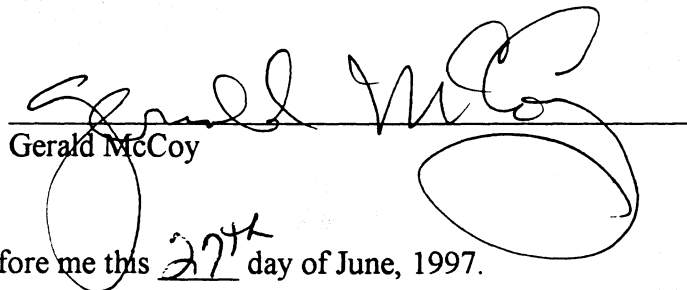 Gerald McCoy
Gerald McCoy
fore me this 27th day of June, 1997.